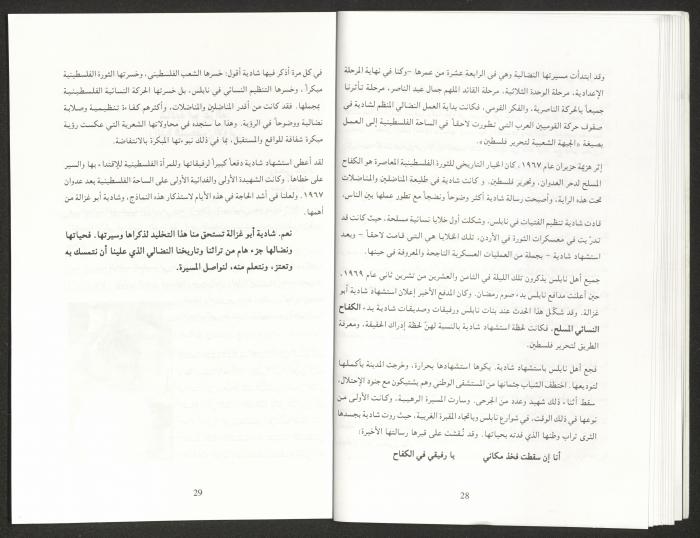 وقد ابتدأت مسيرتها النضالية وهي في الرابعة عشرة من عمرها -وكنا في نهاية المرحلة
الإعدادية، مرحلة الوحدة الثلاثية، مرحلة القائد الملهم جمال عبد الناصر، مرحلة تأثرنا
جميعاً بالحركة الناصرية، والفكر القومي. فكانت بداية العمل النضالي المنظم لشادية في
صفوف حركة القوميين العرب التي تطورت لاحقاً في الساحة الفلسطينية إلى العمل
بصيغة «الجبهة الشعبية لتحرير فلسطين».
إثر هزيمة حزيران عام ١٩٦٧، كان الخيار التاريخي للثورة الفلسطينية المعاصرة هو الكفاح
المسلح لدحر العدوان، وتحرير فلسطين. وكانت شادية في طليعة المناضلين والمناضلات
تحت هذه الراية، وأصبحت رسالة شادية أكثر وضوحاً ونضجاً مع تطور عملها بين الناس.
قادت شادية تنظيم الفتيات في نابلس، وشكلت أول خلايا نسائية مسلحة، حيث كانت قد
تدرّبت في معسكرات الثورة في الأردن، تلك الخلايا هي التي قامت لاحقاً - وبعد
استشهاد شادية - بجملة من العمليات العسكرية الناجحة والمعروفة في حينها.
جميع أهل نابلس يذكرون تلك الليلة في الثامن والعشرين من تشرين ثاني عام ١٩٦٩،
حين أعلنت مدافع نابلس بدء صوم رمضان. وكان المدفع الأخير إعلان استشهاد شادية أبو
غزالة. وقد شكّل هذا الحدث عند بنات نابلس ورفيقات وصديقات شادية بدء الكفاح
النسائي المسلح. فكانت لحظة استشهاد شادية بالنسبة لهنّ لحظة إدراك الحقيقة، ومعرفة
الطريق لتحرير فلسطين.
فجع أهل نابلس باستشهاد شادية. بكوها استشهادها بحرارة، وخرجت المدينة بأكملها
لتوديعها. اختطف الشباب جثمانها من المستشفى الوطني وهم يشتبكون مع جنود الإحتلال،
سقط أثناء ذلك شهيد وعدد من الجرحى. وسارت المسيرة الرهيبة، وكانت الأولى من
نوعها في ذلك الوقت، في شوارع نابلس وباتجاه المقبرة الغربية، حيث روت شادية بجسدها
الثرى تراب وطنها الذي فدته بحياتها. وقد نُقشت على قبرها رسالتها الأخيرة:
أنا إن سقطت فخذ مكاني يا رفيقي في الكفاح
28
في كل مرة أذكر فيها شادية أقول: خسرها الشعب الفلسطيني، وخسرتها الثورة الفلسطينية
مبكراً، وخسرها التنظيم النسائي في نابلس، بل خسرتها الحركة النسائية الفلسطينية
بمجملها. فقد كانت من أقدر المناضلين والمناضلات، وأكثرهم كفاءة تنظيمية وصلابة
نضالية ووضوحاً في الرؤية. وهذا ما ستجده في محاولاتها الشعرية التي عكست رؤية
مبكرة شفافة للواقع والمستقبل، بما في ذلك نبوءتها المبكرة بالانتفاضة.
لقد أعطى استشهاد شادية دفعاً كبيراً لرفيقاتها وللمرأة الفلسطينية للإقتداء بها والسير
على خطاها. وكانت الشهيدة الأولى والفدائية الأولى على الساحة الفلسطينية بعد عدوان
١٩٦٧. ولعلنا في أشد الحاجة في هذه الأيام لاستذكار هذه النماذج، وشادية أبو غزالة من
أهمها.
نعم. شادية أبو غزالة تستحق منا هذا التخليد لذكراها وسيرتها. فحياتها
ونضالها جزء هام من تراثنا وتاريخنا النضالي الذي علينا أن نتمسك به
ونعتز، ونتعلم منه، لنواصل المسيرة.
29